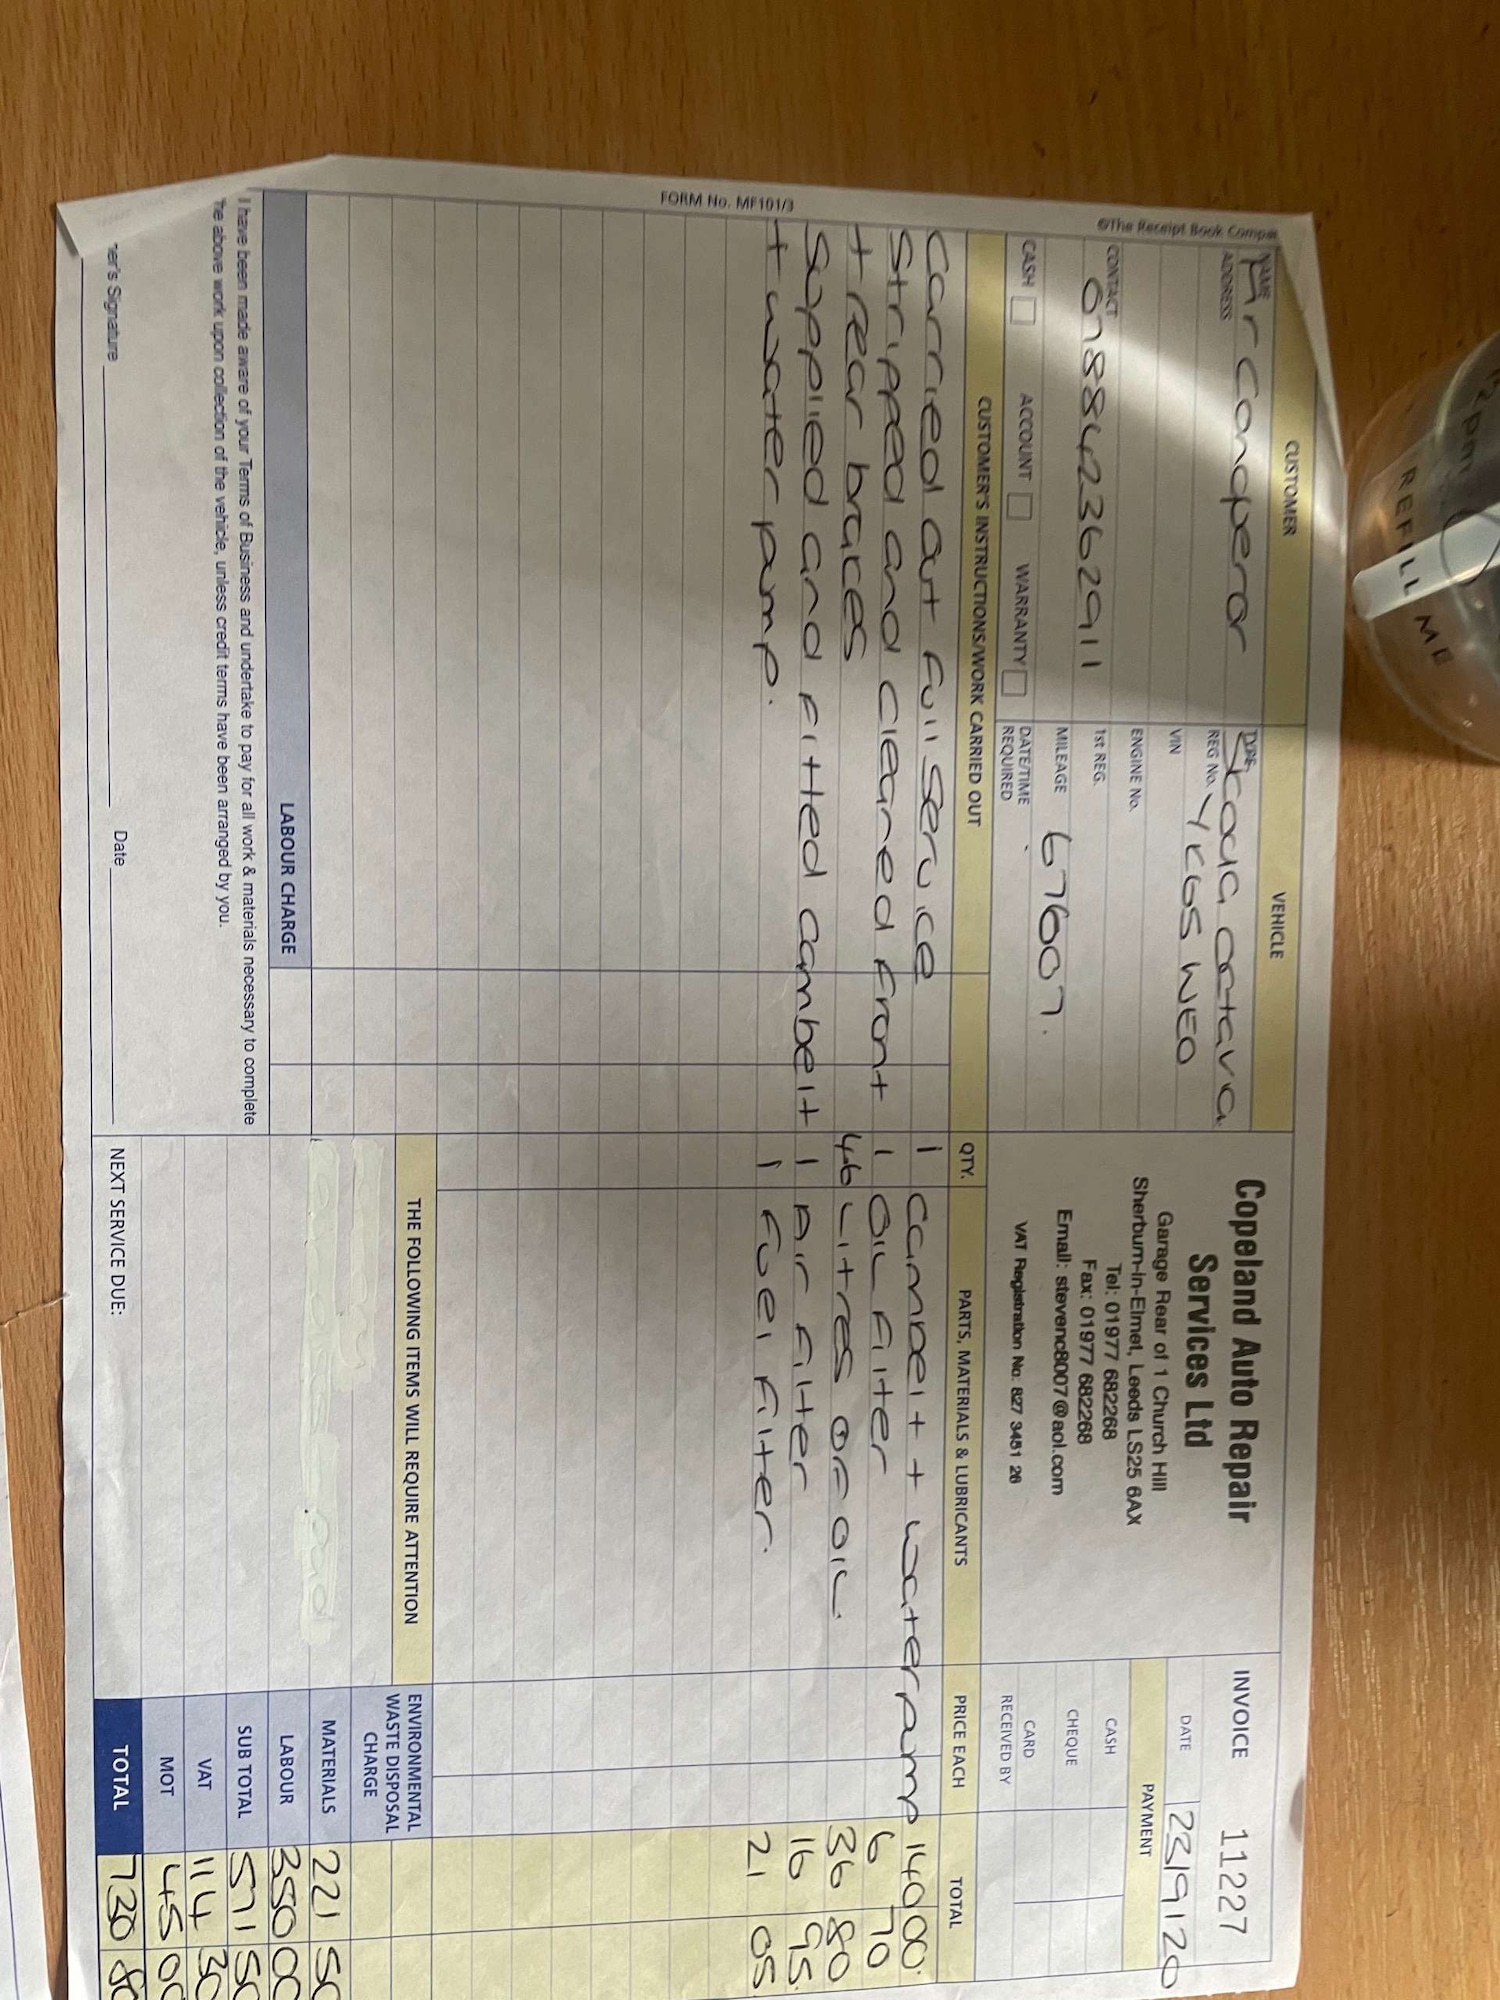 ©The Receipt Book Compa
FORM No. MF101/3
CUSTOMER
NAME Mr Conqueror
ADDRESS
CONTACT 07884236291 1
CASH ACCOUNT WARRANTY
VEHICLE
TYPE Skoda Octavia
REG No. YK65 WEO
VIN
ENGINE No.
1st REG.
MILEAGE 67607.
DATE/TIME REQUIRED
Copeland Auto Repair
Services Ltd
Garage Rear of 1 Church Hill
Sherburn-in-Elmet, Leeds LS25 6AX
Tel: 01977 682268
Fax: 01977 682268
Email: stevenc8007@aol.com
VAT Registration No: 827 3451 26
INVOICE 11227
DATE 23/9/20
PAYMENT
CASH
CHEQUE
CARD
RECEIVED BY
CUSTOMER'S INSTRUCTIONS/WORK CARRIED OUT
Carried out full service
Stripped and cleaned front
+ rear brakes
Supplied and fitted cambelt
+ water pump.
LABOUR CHARGE
QTY. PARTS, MATERIALS & LUBRICANTS PRICE EACH TOTAL
1 Cambelt + water pump 140 00.
1 Oil filter 6 70
4.6 Litres of oil. 36 80
1 Air filter 16 95
1 Fuel filter. 21 05
THE FOLLOWING ITEMS WILL REQUIRE ATTENTION
ENVIRONMENTAL
WASTE DISPOSAL
CHARGE
MATERIALS 221 50
LABOUR 350 00
SUB TOTAL 571 50
VAT 114 30
MOT 45 00
TOTAL 730 80
I have been made aware of your Terms of Business and undertake to pay for all work & materials necessary to complete
he above work upon collection of the vehicle, unless credit terms have been arranged by you.
ner's Signature Date
NEXT SERVICE DUE:
12pm
REFILL ME